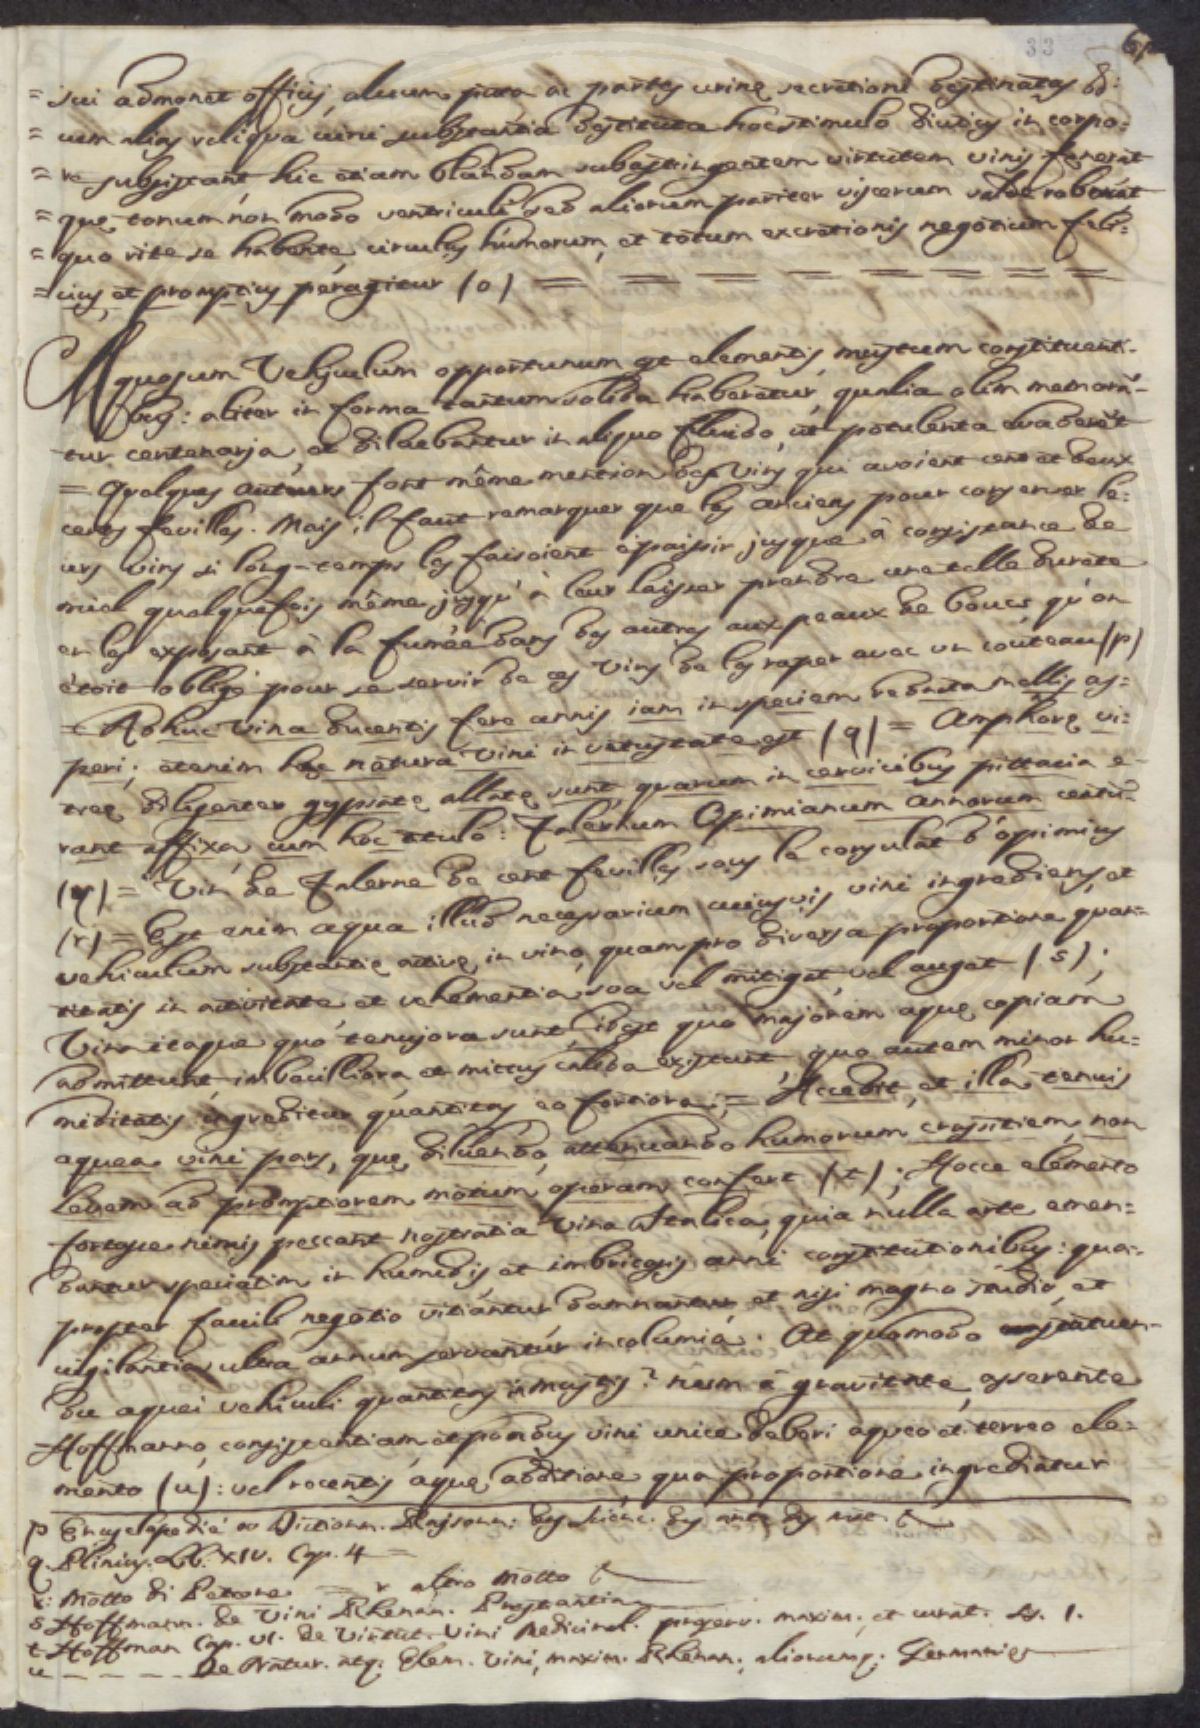 33
= sui admonet officij, alvum puta ac partes urinę secretioni destinatas
= uum alias reliqua vini substantia destituta hoc stimulo diutius in corpo:
= re subsisteant hic etiam blandam subastringentem virtutem vinis fenerat
= quę tonum non modo ventriculi sed aliorum pariter viscerum valde roborat
= quo rite se habente, circulus humorum, et totum excretionis negotium feli:
= cius, et promptius peragitur (o) = = = = = = =
Aquosum Vehiculum opportunum est elementis mustum constituenti-
bus: aliter in forma tantum solida haberetur, qualia olim memoran-
tur centenaria, et diluebantur in aliquo fluido, ut potulenta evaderet
= Quelques auteurs font même mention des Vins qui avoient cent et deux
cents feuilles. Mais il faut remarquer que les anciens pour conserver le:
urs vins si long-temps les faisoient épaissir jusque à consistance de
miel quelquefois même jusqu'à leur laisser prendre une telle dureté
en les exposant à la fumée dans des autres aux peaux de boucs qu'on
étoit obligé pour se servir de ces Vins de les raper avec un couteau (p)
= Adhuc Vina ducentis fere annis iam in speciem redacta mellis as:
peri; etenim hęc natura Vini in vetustate est (q) = Amphorę vi:
treę diligenter gypsatę allatę sunt, quarum in cervicibus pittacia e-
rant affixa, cum hoc titulo: Falernum Opimianum annorum centũ
(r) = Vin de Falerne de cent feuilles sous le consulat d'opimius
(r) = Est enim aqua illud necessarium cuiusvis vini ingrediens, et
vehiculum substantię activę in vino, quam pro diversa proportione quan:
titatis in activitate et vehementia sua vel mitigat, vel auget (s);
Vina itaque quo tenujora sunt, idest quo majorem aquę copiam
admittunt, imbecilliora, et minus calida existunt, quo autem minor hu:
miditatis ingreditur quantitas eo fortiora; = Accedit, et illa tenuis
aquea vini pars, quę diluendo, attenuando humorum crassitiem, non
levem ad promptiorem motum operam confert (t); Hocce elemento
fortque nimis peccant nostratia Vina Italica, quia nulla arte emen:
dantur speciatim in humidis et imbricosis anni constitutionibus: qua:
propter facili negotio vitiantur damnantur, et nisi magno studio, et
vigilantia ultra annum servantur incolumia. At quomodo statuen-
da aquei vehiculi quantitas in mustis? num e gravitate, asserente
Hoffmanno, consistentiam, et pondus vini unice deberi aqueo et terreo ele:
mento (u): vel recentis aquę additione, qua proportione ingrediatur
p Encyclopedie ou Dictionn. Raisonn. des Scienc. des arts, des met.
q. Plinius. Lib. XIV. Cap. 4 =
r: Motto di Petrone = r altro motto
s Hoffmann. de Vini Rhenan. Prestantia
t Hoffman Cap. VI. de Virtut. Vini Medicinal. preserv. maxim. et curat. §. 1.
u - - - - - De Natur. atq. Elem. Vini, maxim. Rhenan., aliorumq. Germanię